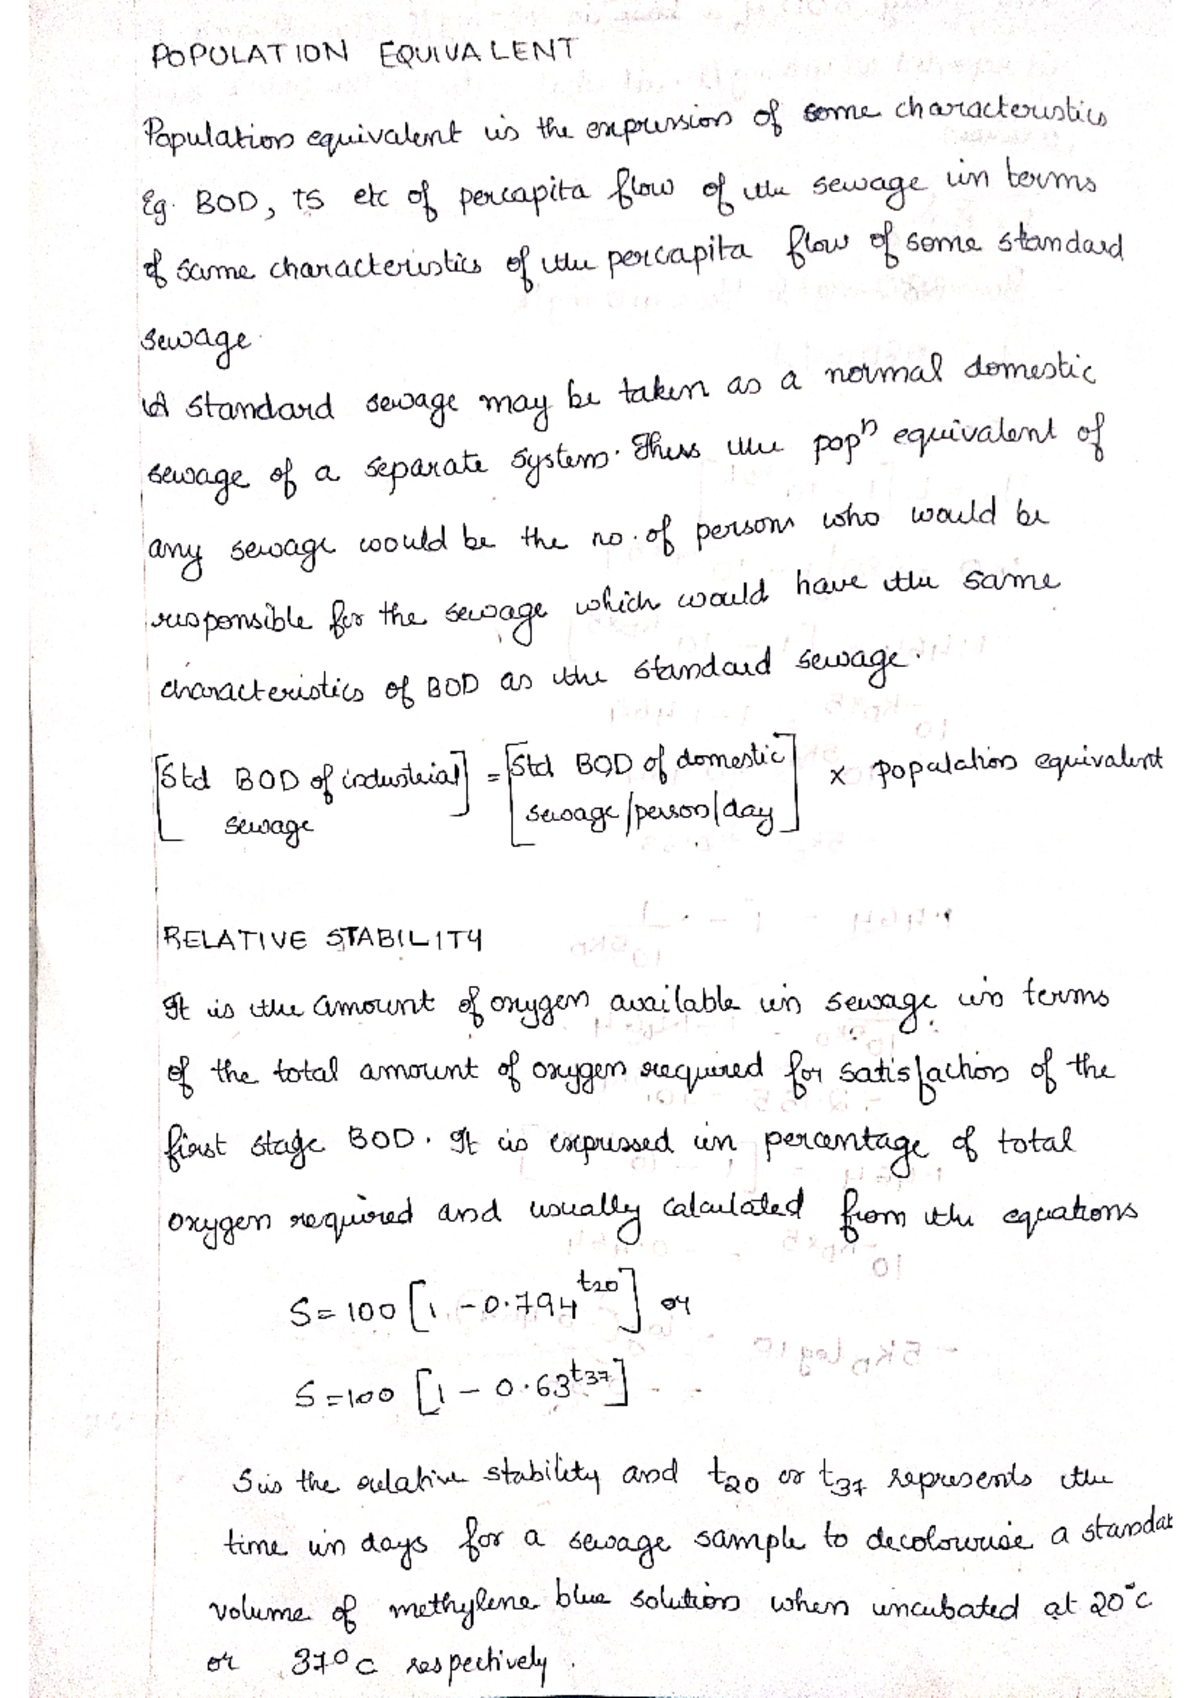 POPULATION EQUIVALENT
Population equivalent is the expression of some characteristics
Eg. BOD, TS etc of percapita flow of the sewage in terms
of same characteristics of the percapita flow of some standard
sewage.
A standard sewage may be taken as a normal domestic
sewage of a separate system. Thus the popⁿ equivalent of
any sewage would be the no. of persons who would be
responsible for the sewage which would have the same
characteristics of BOD as the standard sewage.
[Std BOD of industrial sewage] = [Std BOD of domestic sewage/person/day] x population equivalent
RELATIVE STABILITY
It is the amount of oxygen available in sewage in terms
of the total amount of oxygen required for satisfaction of the
first stage BOD. It is expressed in percentage of total
oxygen required and usually calculated from the equations
S = 100 [1 - 0.794^t20] or
S = 100 [1 - 0.63^t37]
S is the relative stability and t20 or t37 represents the
time in days for a sewage sample to decolourise a standar
volume of methylene blue solution when incubated at 20°c
or 37°c respectively.